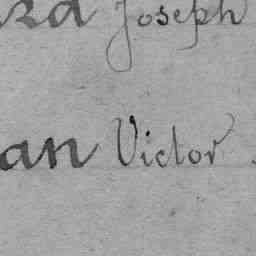 Joseph
an Victor